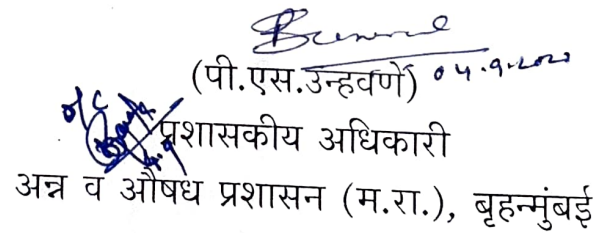 (पी.एस.उन्हवणे) ०५.९.२०२०
o/c
प्रशासकीय अधिकारी
अन्न व औषध प्रशासन (म.रा.), बृहन्मुंबई